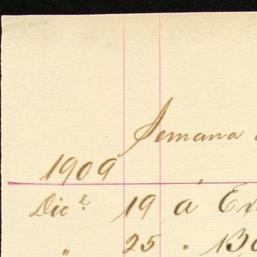 Semana
1909
Dic.e 19 á
" 25 "